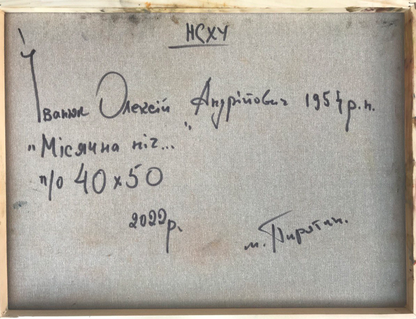 НСХУ
Іванюк Олексій Андрійович 1954 р.н.
"Місячна ніч..."
п/о 40х50
2022р.
м. Пирятин.